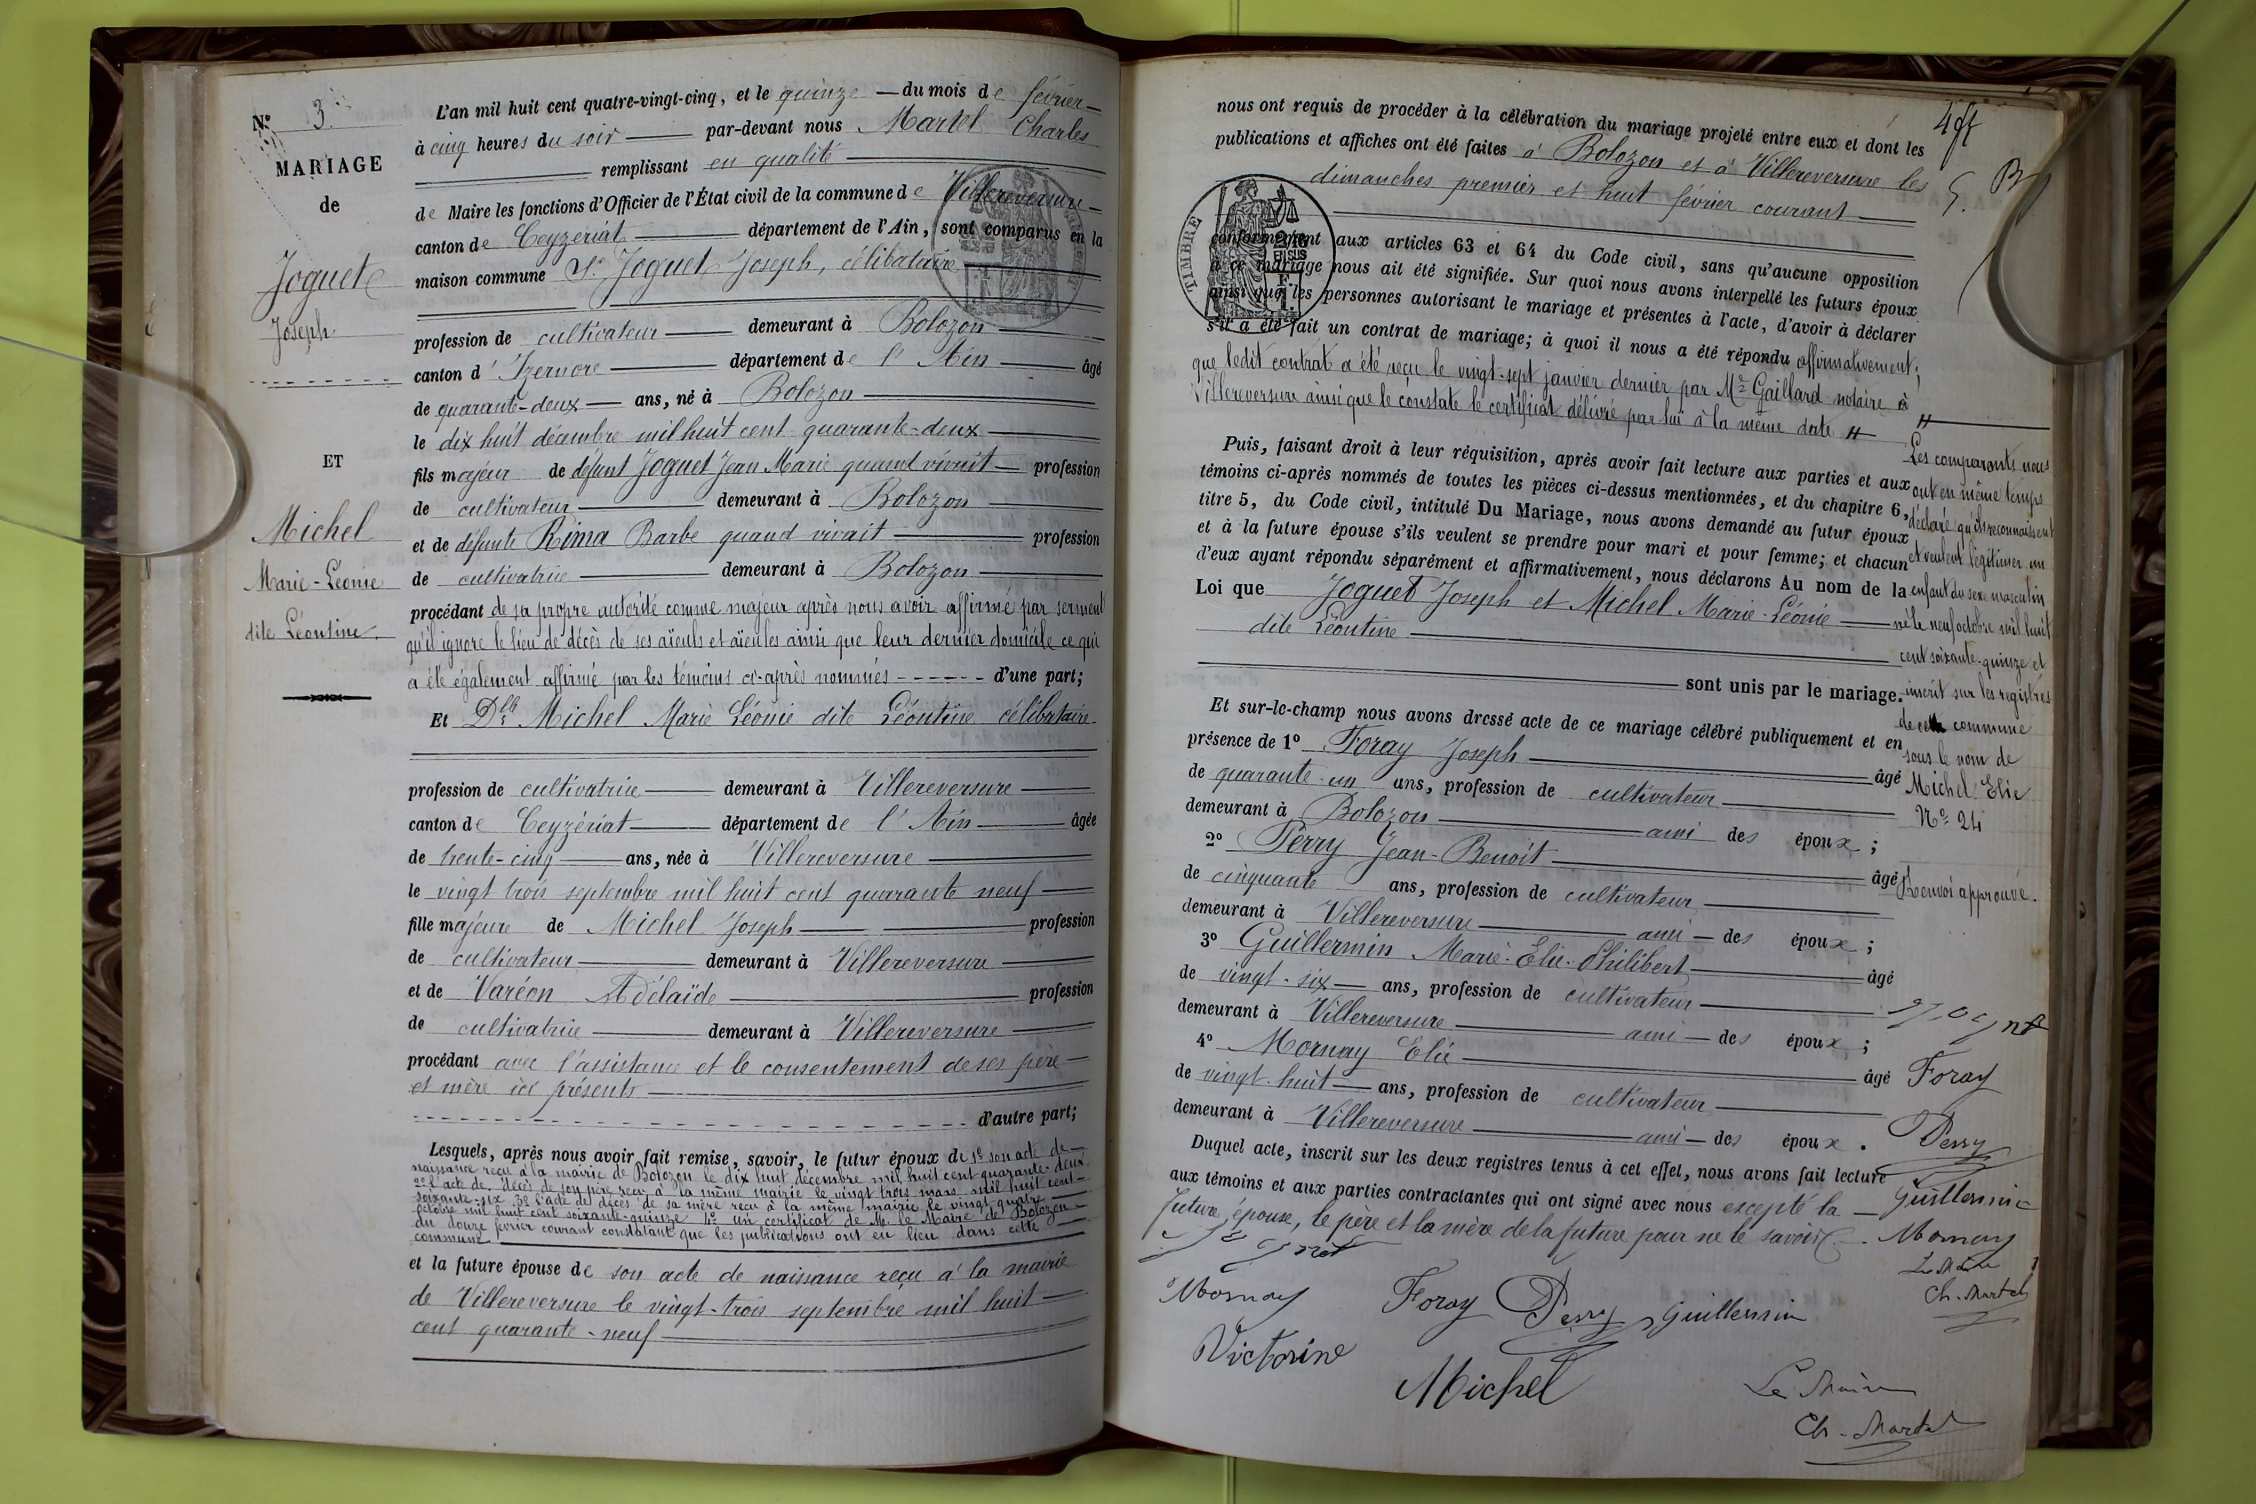 N° 3.
MARIAGE
de
Joguet
Joseph
ET
Michel
Marie-Léonie
dite Léontine.
L'an mil huit cent quatre-vingt-cinq, et le quinze — du mois de février —
à cinq heures du soir — par-devant nous Martel Charles
remplissant en qualité
de Maire les fonctions d'Officier de l'État civil de la commune de Villereversure —
canton de Ceyzeriat — département de l'Ain, sont comparus en la
maison commune Sr Joguet Joseph, célibataire
profession de cultivateur — demeurant à Bolozon
canton d'Izernore — département de l'Ain — âgé
de quarante-deux — ans, né à Bolozon
le dix huit décembre mil huit cent quarante-deux
fils majeur de défunt Joguet Jean Marie quand vivait — profession
de cultivateur — demeurant à Bolozon
et de défunte Rima Barbe quand vivait — profession
de cultivatrice — demeurant à Bolozon
procédant de sa propre autorité comme majeur après nous avoir affirmé par serment
qu'il ignore le lieu de décès de ses aïeuls et aïeules ainsi que leur dernier domicile ce qui
a été également affirmé par les témoins ci-après nommés - - - - - - d'une part;
Et Dlle Michel Marie Léonie dite Léontine célibataire
profession de cultivatrice — demeurant à Villereversure —
canton de Ceyzériat — département de l'Ain — âgée
de trente-cinq — ans, née à Villereversure
le vingt trois septembre mil huit cent quarante neuf
fille majeure de Michel Joseph — profession
de cultivateur — demeurant à Villereversure
et de Varéon Adélaïde — profession
de cultivatrice — demeurant à Villereversure
procédant avec l'assistance et le consentement de ses père
et mère ici présents
d'autre part;
Lesquels, après nous avoir fait remise, savoir, le futur époux de 1° son acte de
naissance reçu à la mairie de Bolozon le dix huit décembre mil huit cent quarante-deux
2° l'acte de décès de son père reçu à la même mairie le vingt trois mars mil huit cent
soixante-six 3° l'acte de décès de sa mère reçu à la même mairie le vingt-quatre
octobre mil huit cent soixante-quinze 4° un certificat de M. le Maire de Bolozon
du douze février courant constatant que les publications ont eu lieu dans cette
commune
et la future épouse de son acte de naissance reçu à la mairie
de Villereversure le vingt-trois septembre mil huit
cent quarante-neuf
nous ont requis de procéder à la célébration du mariage projeté entre eux et dont les
publications et affiches ont été faites à Bolozon et à Villereversure les
dimanches premier et huit février courant
TIMBRE
conformément aux articles 63 et 64 du Code civil, sans qu'aucune opposition
à ce mariage nous ait été signifiée. Sur quoi nous avons interpellé les futurs époux
ainsi que les personnes autorisant le mariage et présentes à l'acte, d'avoir à déclarer
s'il a été fait un contrat de mariage; à quoi il nous a été répondu affirmativement;
que ledit contrat a été reçu le vingt-sept janvier dernier par Me Gaillard notaire à
Villereversure ainsi que le constate le certificat délivré par lui à la même date
Puis, faisant droit à leur réquisition, après avoir fait lecture aux parties et aux
témoins ci-après nommés de toutes les pièces ci-dessus mentionnées, et du chapitre 6,
titre 5, du Code civil, intitulé Du Mariage, nous avons demandé au futur époux
et à la future épouse s'ils veulent se prendre pour mari et pour femme; et chacun
d'eux ayant répondu séparément et affirmativement, nous déclarons Au nom de la
Loi que Joguet Joseph et Michel Marie-Léonie
dite Léontine
sont unis par le mariage.
Et sur-le-champ nous avons dressé acte de ce mariage célébré publiquement et en
présence de 1° Foray Joseph — âgé
de quarante-un ans, profession de cultivateur
demeurant à Bolozon — ami des époux;
2° Perry Jean-Benoit — âgé
de cinquante ans, profession de cultivateur
demeurant à Villereversure — ami — des époux;
3° Guillermin Marie-Elie-Philibert — âgé
de vingt-six — ans, profession de cultivateur
demeurant à Villereversure — ami — des époux;
4° Mornay Elie — âgé
de vingt-huit — ans, profession de cultivateur
demeurant à Villereversure — ami — des époux.
Duquel acte, inscrit sur les deux registres tenus à cet effet, nous avons fait lecture
aux témoins et aux parties contractantes qui ont signé avec nous excepté la
future épouse, le père et la mère de la future pour ne le savoir.
Mornay Foray Perry Guillermin
Victorine
Michel
Le Maire
Ch. Martel
Les comparants nous
ont en même temps
déclaré qu'ils reconnaissent
et veulent légitimer un
enfant du sexe masculin
né le neuf octobre mil huit
cent soixante-quinze et
inscrit sur les registres
de cette commune
sous le nom de
Michel Elie
N° 24
Renvoi approuvé.
Foray
Perry
Guillermin
Mornay
Le Maire
Ch. Martel